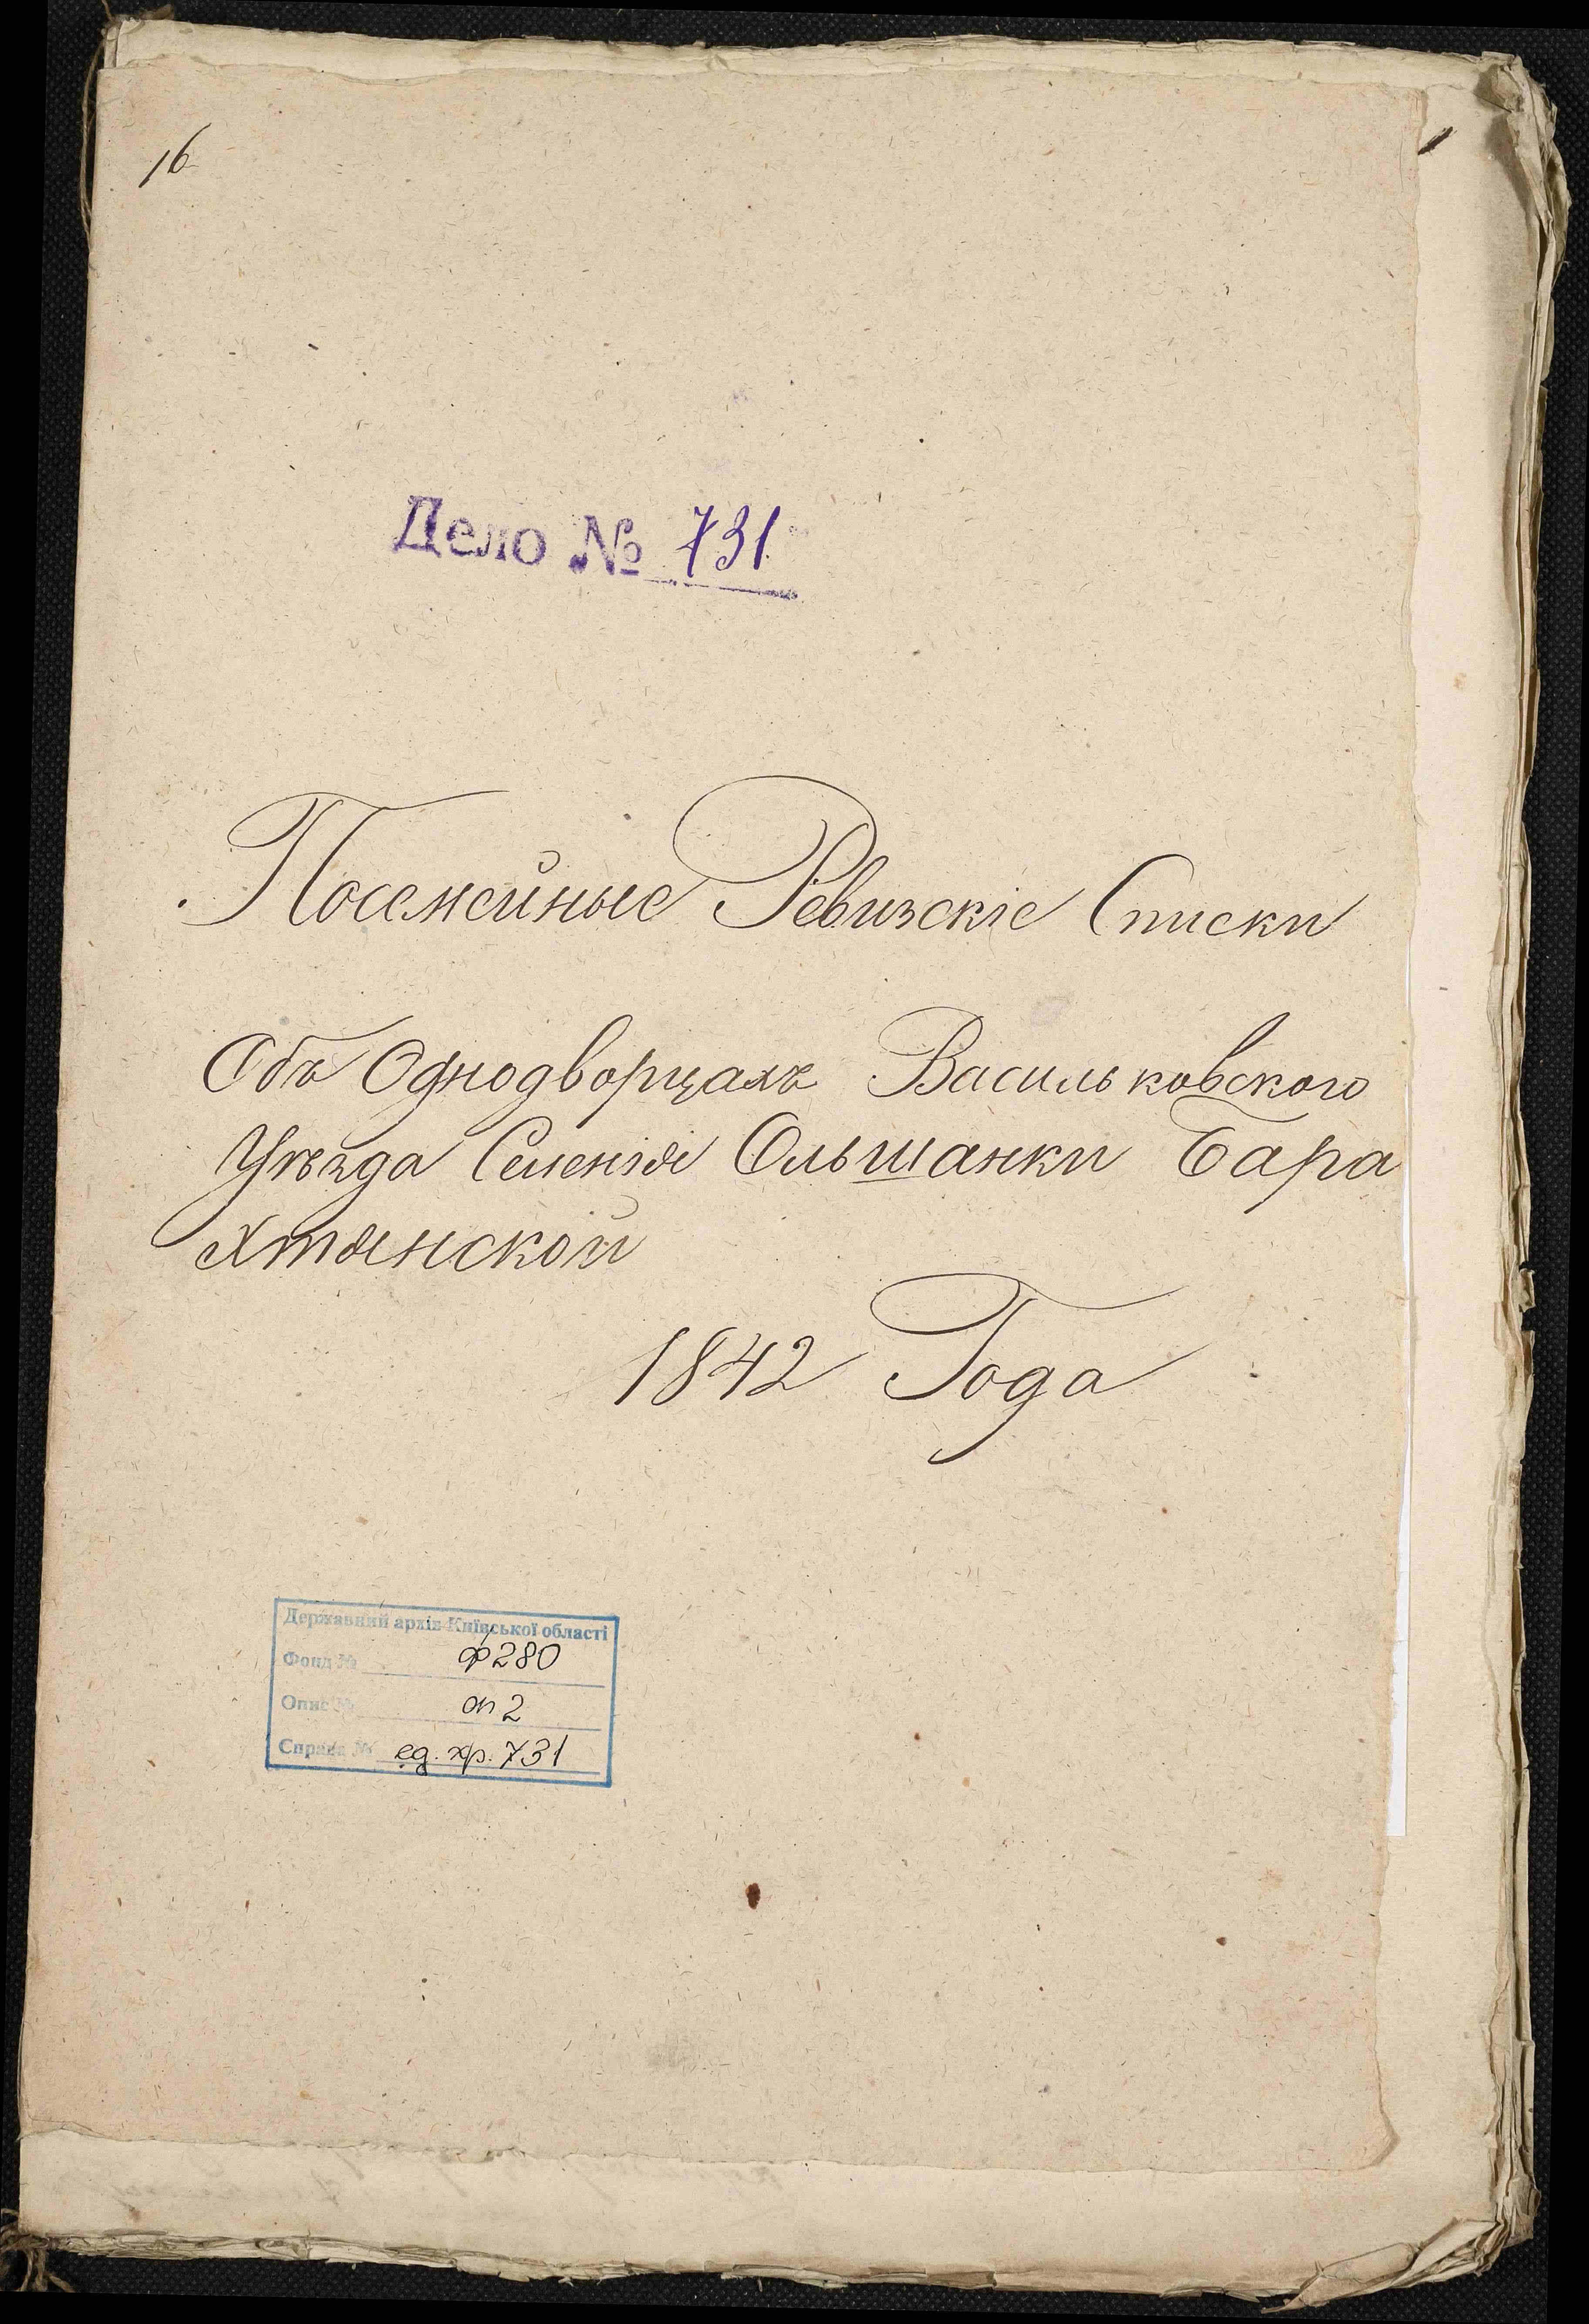 16
1
Дело № 731
Посемейные Ревизскіе Списки
Объ Однодворцахъ Васильковского
Уѣзда Селенія Ольшанки Бара
хтянской
1842 Года
Державний архів Київської області
Фонд № ф 280
Опис № оп 2
Справа № ед. хр. 731